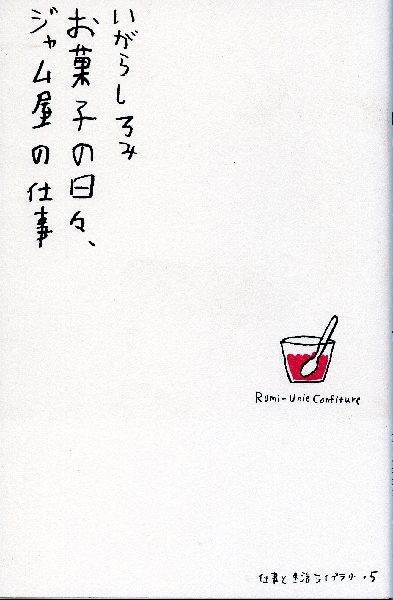 いがらしろみ
お菓子の日々、
ジャム屋の仕事
Romi-Unie Confiture
仕事と生活ライブラリ・5